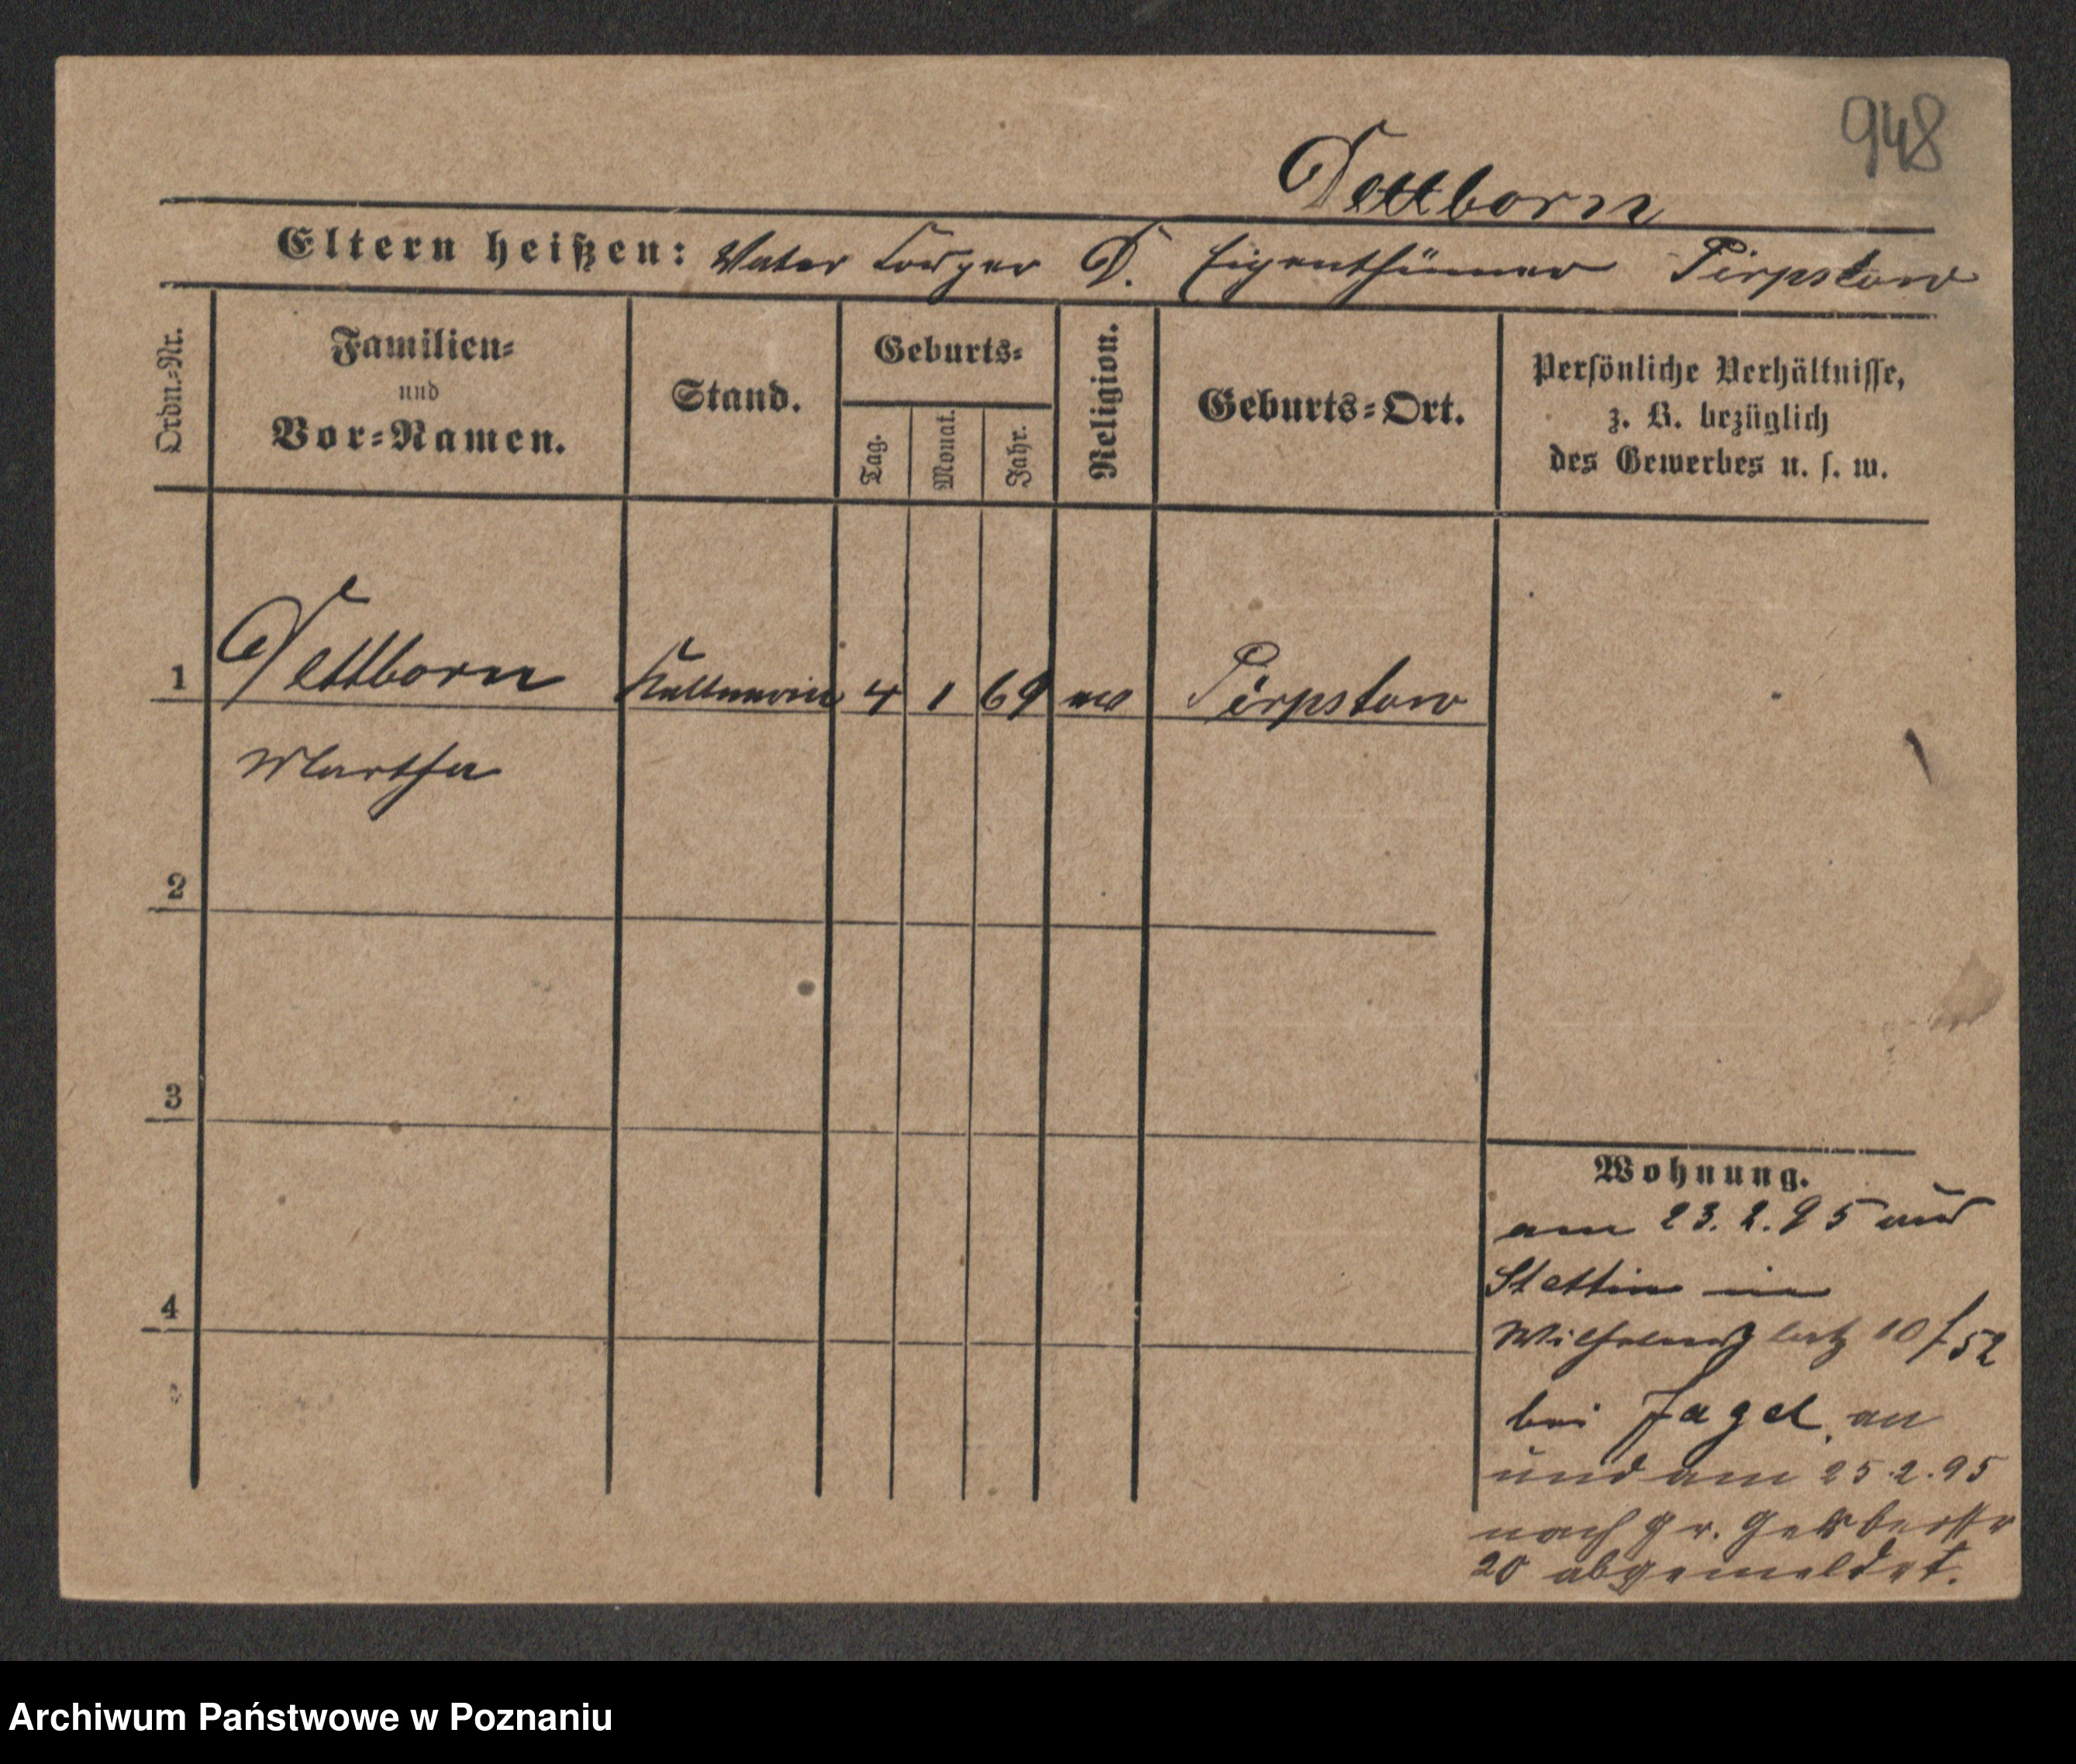 948
Dettborn
Eltern heißen: Vater D. Eigenthümer Pirpstow
Ordn.-Nr.
Familien-
und
Vor-Namen.
Stand.
Geburts-
Tag.
Monat.
Jahr.
Religion.
Geburts-Ort.
Persönliche Verhältnisse,
z. B. bezüglich
des Gewerbes u. s. w.
1 Dettborn Kellnerin 4 1 69 ev Pirpstow
Martha
2
3
4
Wohnung.
am 23. 2. 95 aus
Stettin in
Wilhelmsplatz 10 / 52
bei Jagel an
und am 25.2.95
nach Gr. Gerberstr
20 abgemeldet.
Archiwum Państwowe w Poznaniu